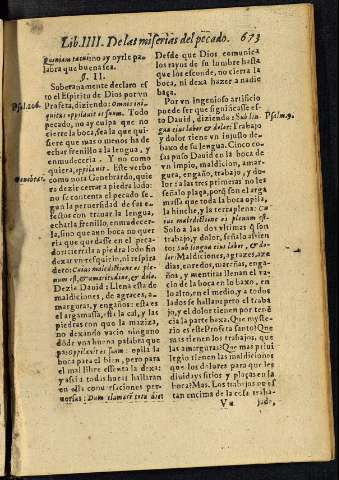 Lib. IIII. De las miserias del pecado. 673
no ay oyrle pa-
labra que buena sea.
§. II.
Soberanamente declaro es-
to el Espiritu de Dios por vn
Profeta, diziendo: Omnis ini-
quitas oppilavit os suum. Todo
pecado, no ay culpa que no
cierre la boca, sea la que qui-
siere que mas o menos ha de
echar frenillo a la lengua, y
enmudeceria. Y no como
quiera, oppilavit. Este verbo
como nota Genebrardo, quie
re dezir cerrar a piedra lodo:
no se contenta el pecado se-
gun la peruersidad de sus e-
fectos con trauar la lengua,
echarla frenillo, enmudecer-
la, sino que aun boca no quer
ria que quedasse en el peca-
dor: cierrala a piedra lodo sin
dexar vn resquicio, ni respira
dero: Cuius maledictione os ple-
num est, & amaritudine, & dolo.
Dezia Dauid: Llena esta de
maldiciones, de agrazes, a-
marguras, y engaños: esta es
el argamassa, esta la cal, y las
piedras con que la maziza,
no dexando vacio ninguno
dóde vna buena palabra que
pa: oppilavit os suum: opila la
boca para el bien, pero para
el mal libre essenta la dexa:
y assi a todas horas hallaran
en ella conuersaciones per-
uersas: Dum clamarē tota die:
Desde que Dios comunica
los rayos de su lumbre hasta
que los esconde, no cierra la
boca, ni dexa hazer a nadie
baça.
Por vn ingenioso artificio
puede ser que significasse es-
to Dauid, diziendo: Sub lin-
gua eius labor & dolor: Trabajo
y dolor tienen vn injusto de-
baxo de su lengua. Cinco co-
sas puso Dauid en la boca de
vn impio, maldicion, amar-
gura, engaño, trabajo, y do-
lor: a las tres primeras no les
señalo plaça, porq̃ son el arga
massa que toda la boca opila,
la hinche, y la terraplena: Cu
ius maledictione os plenum est.
Solo a las dos vltimas q̃ son
trabajo, y dolor, señalo assien
to: sub lingua eius labor, & do-
lor. Maldiciones, agrazes, aze
dias, enredos, marañas, enga-
ños, y mentiras llenan el va-
cio de la boca en lo baxo, en
lo alto, en el medio, y a todos
lados se hallan: pero el traba
jo, y el dolor tienen por tercia
la parte baxa. Que myste-
rio es este Profeta santo? Que
mas tienen los trabajos, que
las amarguras? Que mas pri
uilegio tienen las maldiciones
que los dolores para que les
diuidays sitios y plaças en
la hora? Mas. Los trabajos no es
tan encima de la cosa traba-
Vu jada,
Psal. 106.
Genebrar.
Psalm. 9.